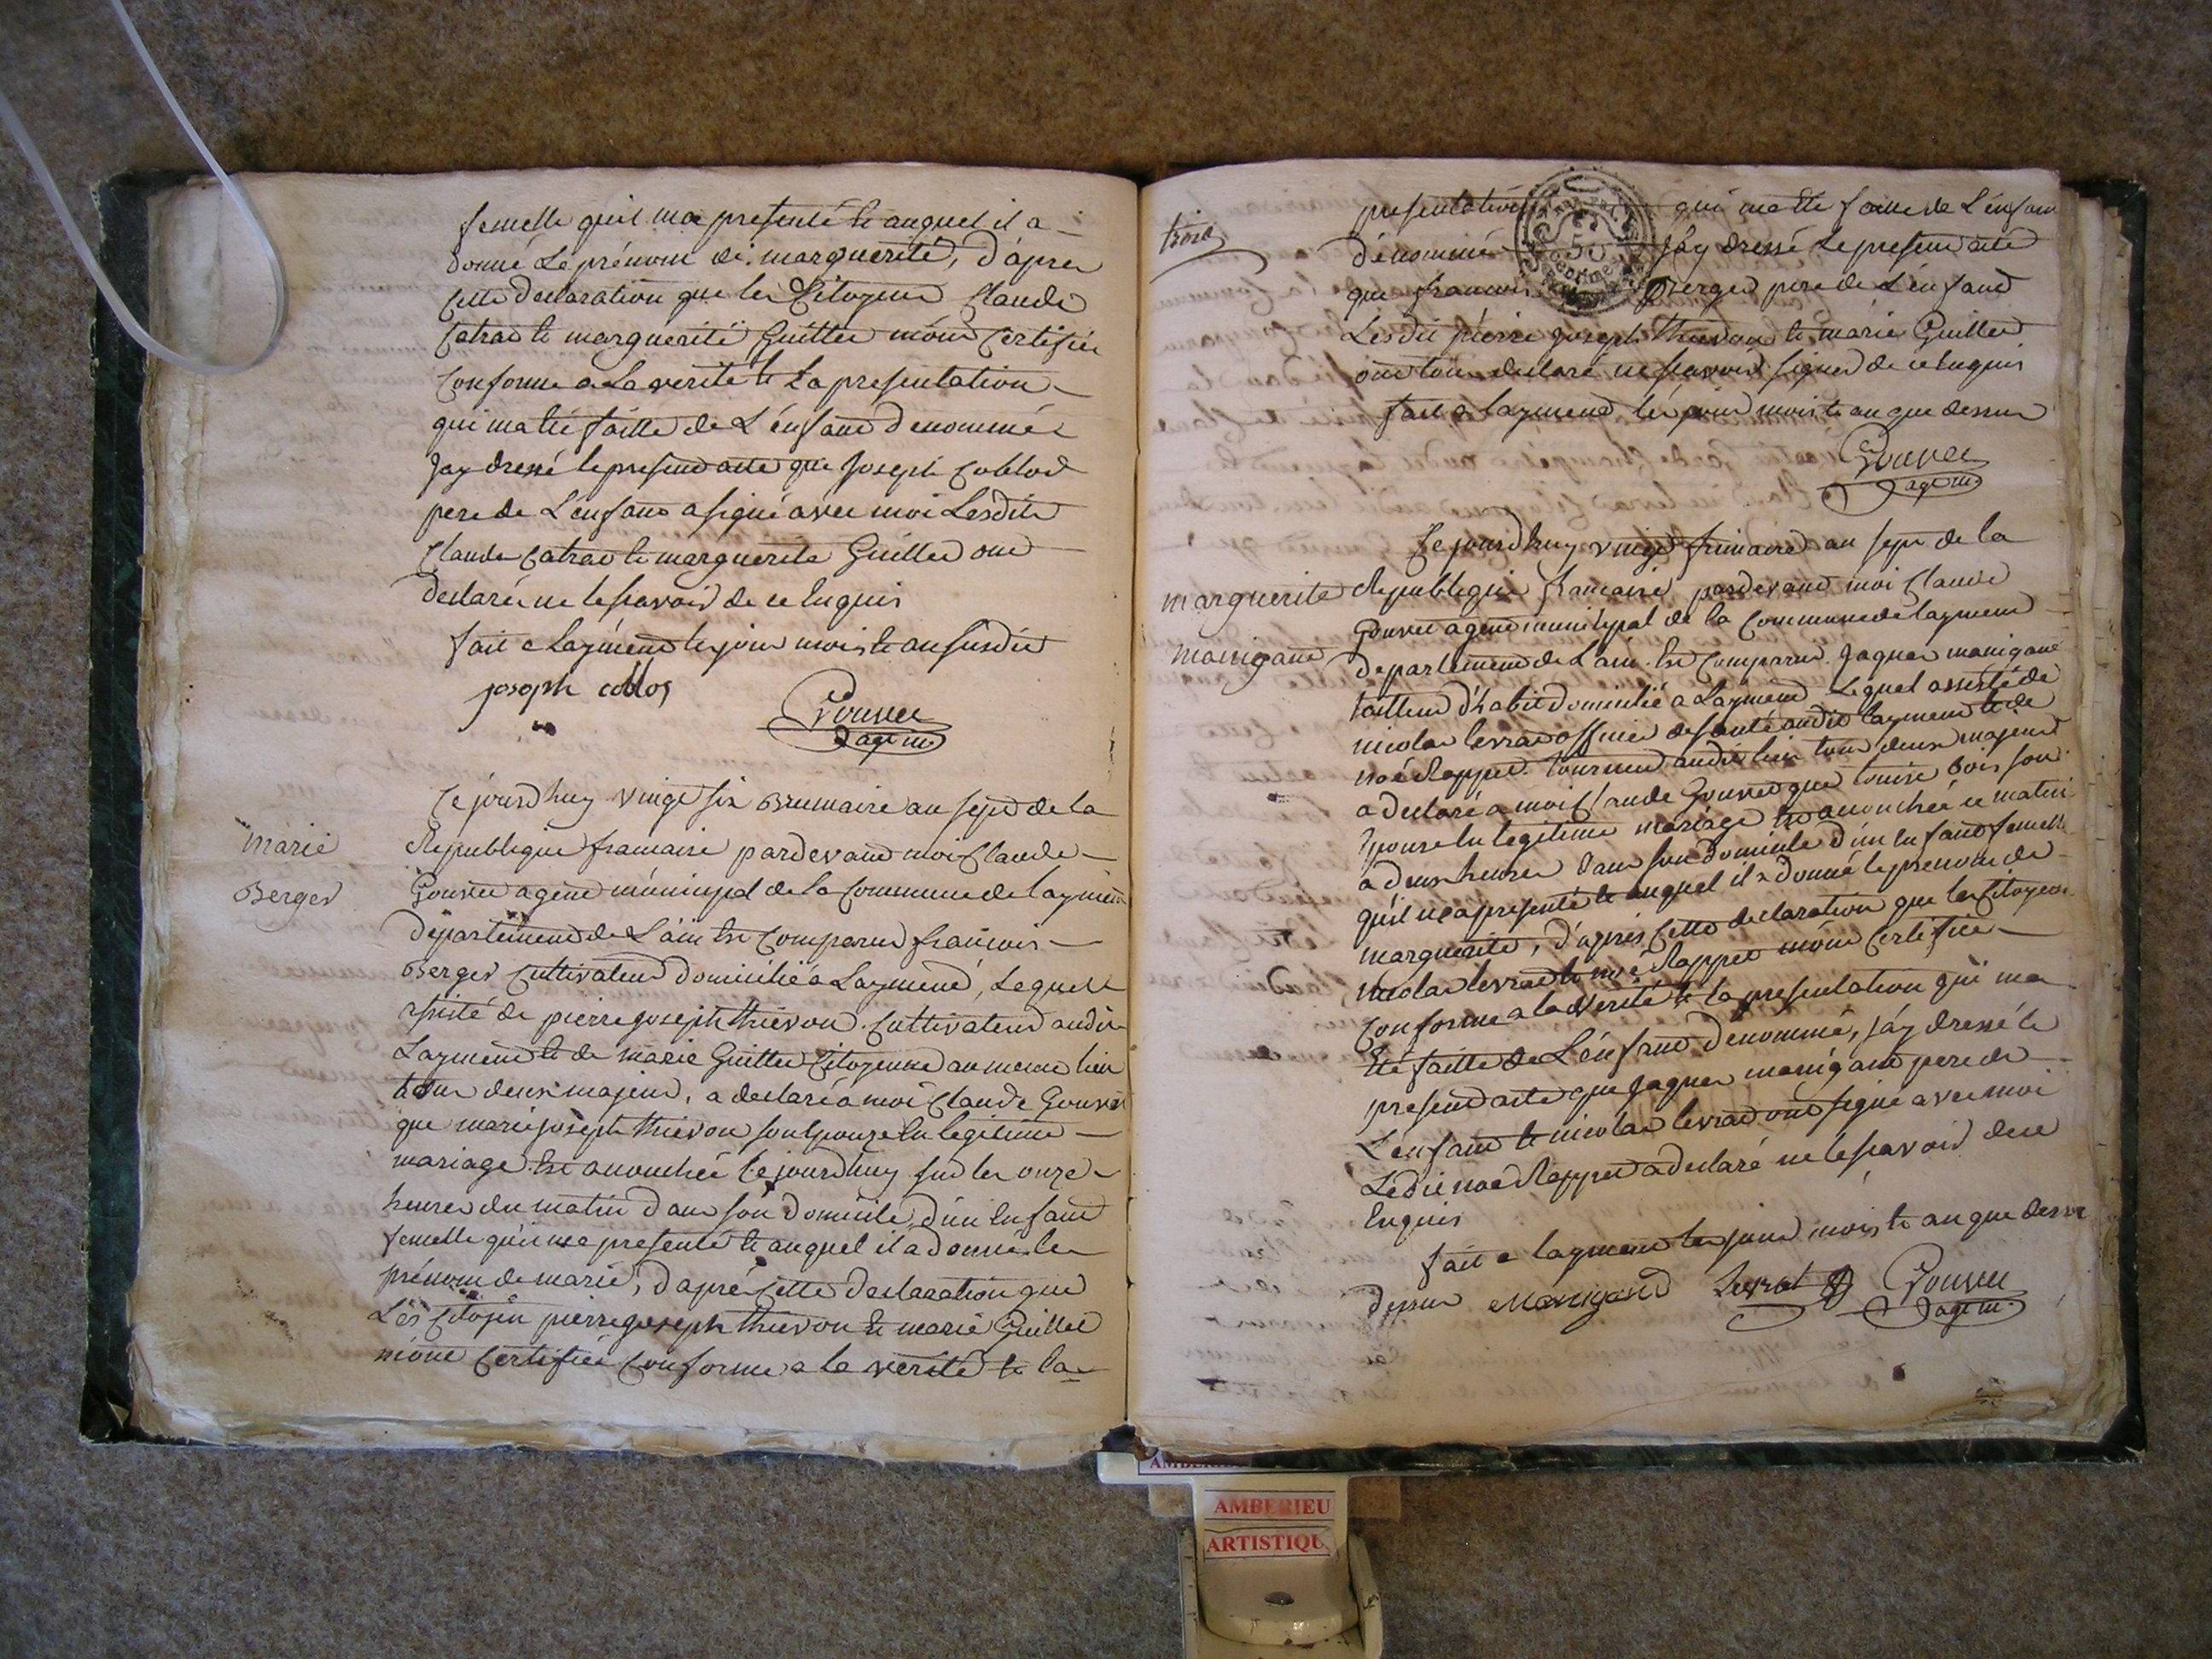 femelle quil ma presenté et auquel il a
donné Le prénom de marguerite, d'apres
cette declaration que les Citoyens Claude
Catrao et marguerite Guillee mónt certifiée
Conforme a La verité et La presentation
qui ma été faitte de L'énfant dénommé
Jay dressé le présent acte que Joseph
pere de L'énfant a signé avec moi Lesdits
Claude Catrao et marguerite Guillee ont
déclaré ne le savoir de ce enquis
fait a Layment les jour mois et an susdit
joseph
Gouvee
age m.
Ce jourdhuy vingt six Brumaire an sept de la
marie
Berger
Republique francaise pardevant moi Claude
Gouvee agent municipal de la Commune de layment
departement de Lain est comparu francois
Berger Cultivateur domicilié a Layment, Lequel
assisté de pierre joseph thievon Cultivateur audit
Layment et de marie Guillee Citoyenne au meme lieu
tous deux majeur, a declaré a moi Claude Gouvee
que marie joseph thievon son Epouze En legitime
mariage Est accouchée Ce jourdhuy sur les onze
heures du matin dans son domicile, d'un Enfant
femelle quil ma presenté et auquel il a donné le
prénom de marie, d'après cette declaration que
Les Citoyen pierre joseph thievon et marie Guillee
mónt certifiée Conforme a la verité et la
trois
presentation qui ma été faitte de L'énfant
dénommé Jáy dressé Le present acte
que francois Berger pere de L'énfant
Lesdit pierre joseph thievon et marie Guillee
ont tous declaré ne scavoir signer de ce Enquis
fait a layment les jour mois et an que dessus
Gouvee
age m.
Ce jourdhuy vingt frimaire an sept de la
marguerite
manigand
Republique francaise pardevant moi Claude
Gouvee agent municipal de la Commune de layment
departement de L'ain. Est Comparu Jaques manigand
tailleur d'habit domicilié a Layment Lequel assisté de
nicolas levrat officier de santé audit layment et de
noé Rappet tourneur audit lieu tous deux majeurs
a declaré a moi Claude Gouvee que louise Bois son
Epouse En legitime mariage Est accouchée ce matin
a deux heures dans son domicile d'un Enfant femelle
quil ma presenté et auquel il a donné le prenom de
marguerite, d'après cette declaration que les Citoyens
nicolas levrat et noé Rappet mónt certifiée
Conforme a la verité et la presentation qui ma
Été faitte de L'énfant dénommé, jáy dressé le
present acte que Jaques manigand pere de
L'enfant et nicolas levrat ont signé avec moi
Ledit noé Rappet a declaré ne le scavoir de ce
Enquis
fait a layment les jour mois et an que dessus
dessus Manigand Levrat Gouvee
age m.
AMBERIEU
ARTISTIQU